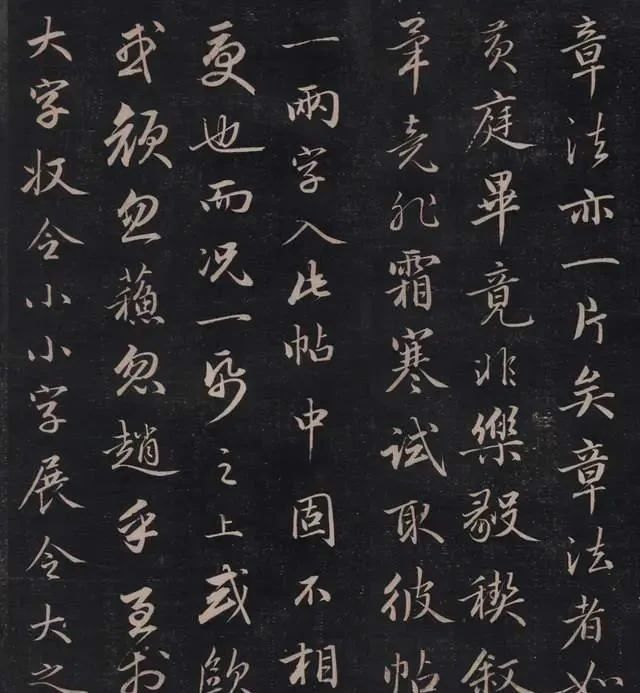 章法亦一片矣章法者如
黄庭畢竟非樂毅稧叙
畢竟非霜寒試取彼帖
一兩字入此帖中固不相
也而况一帋之上或歐
或顔忽蘓忽趙乎至於
大字收令小小字展令大之